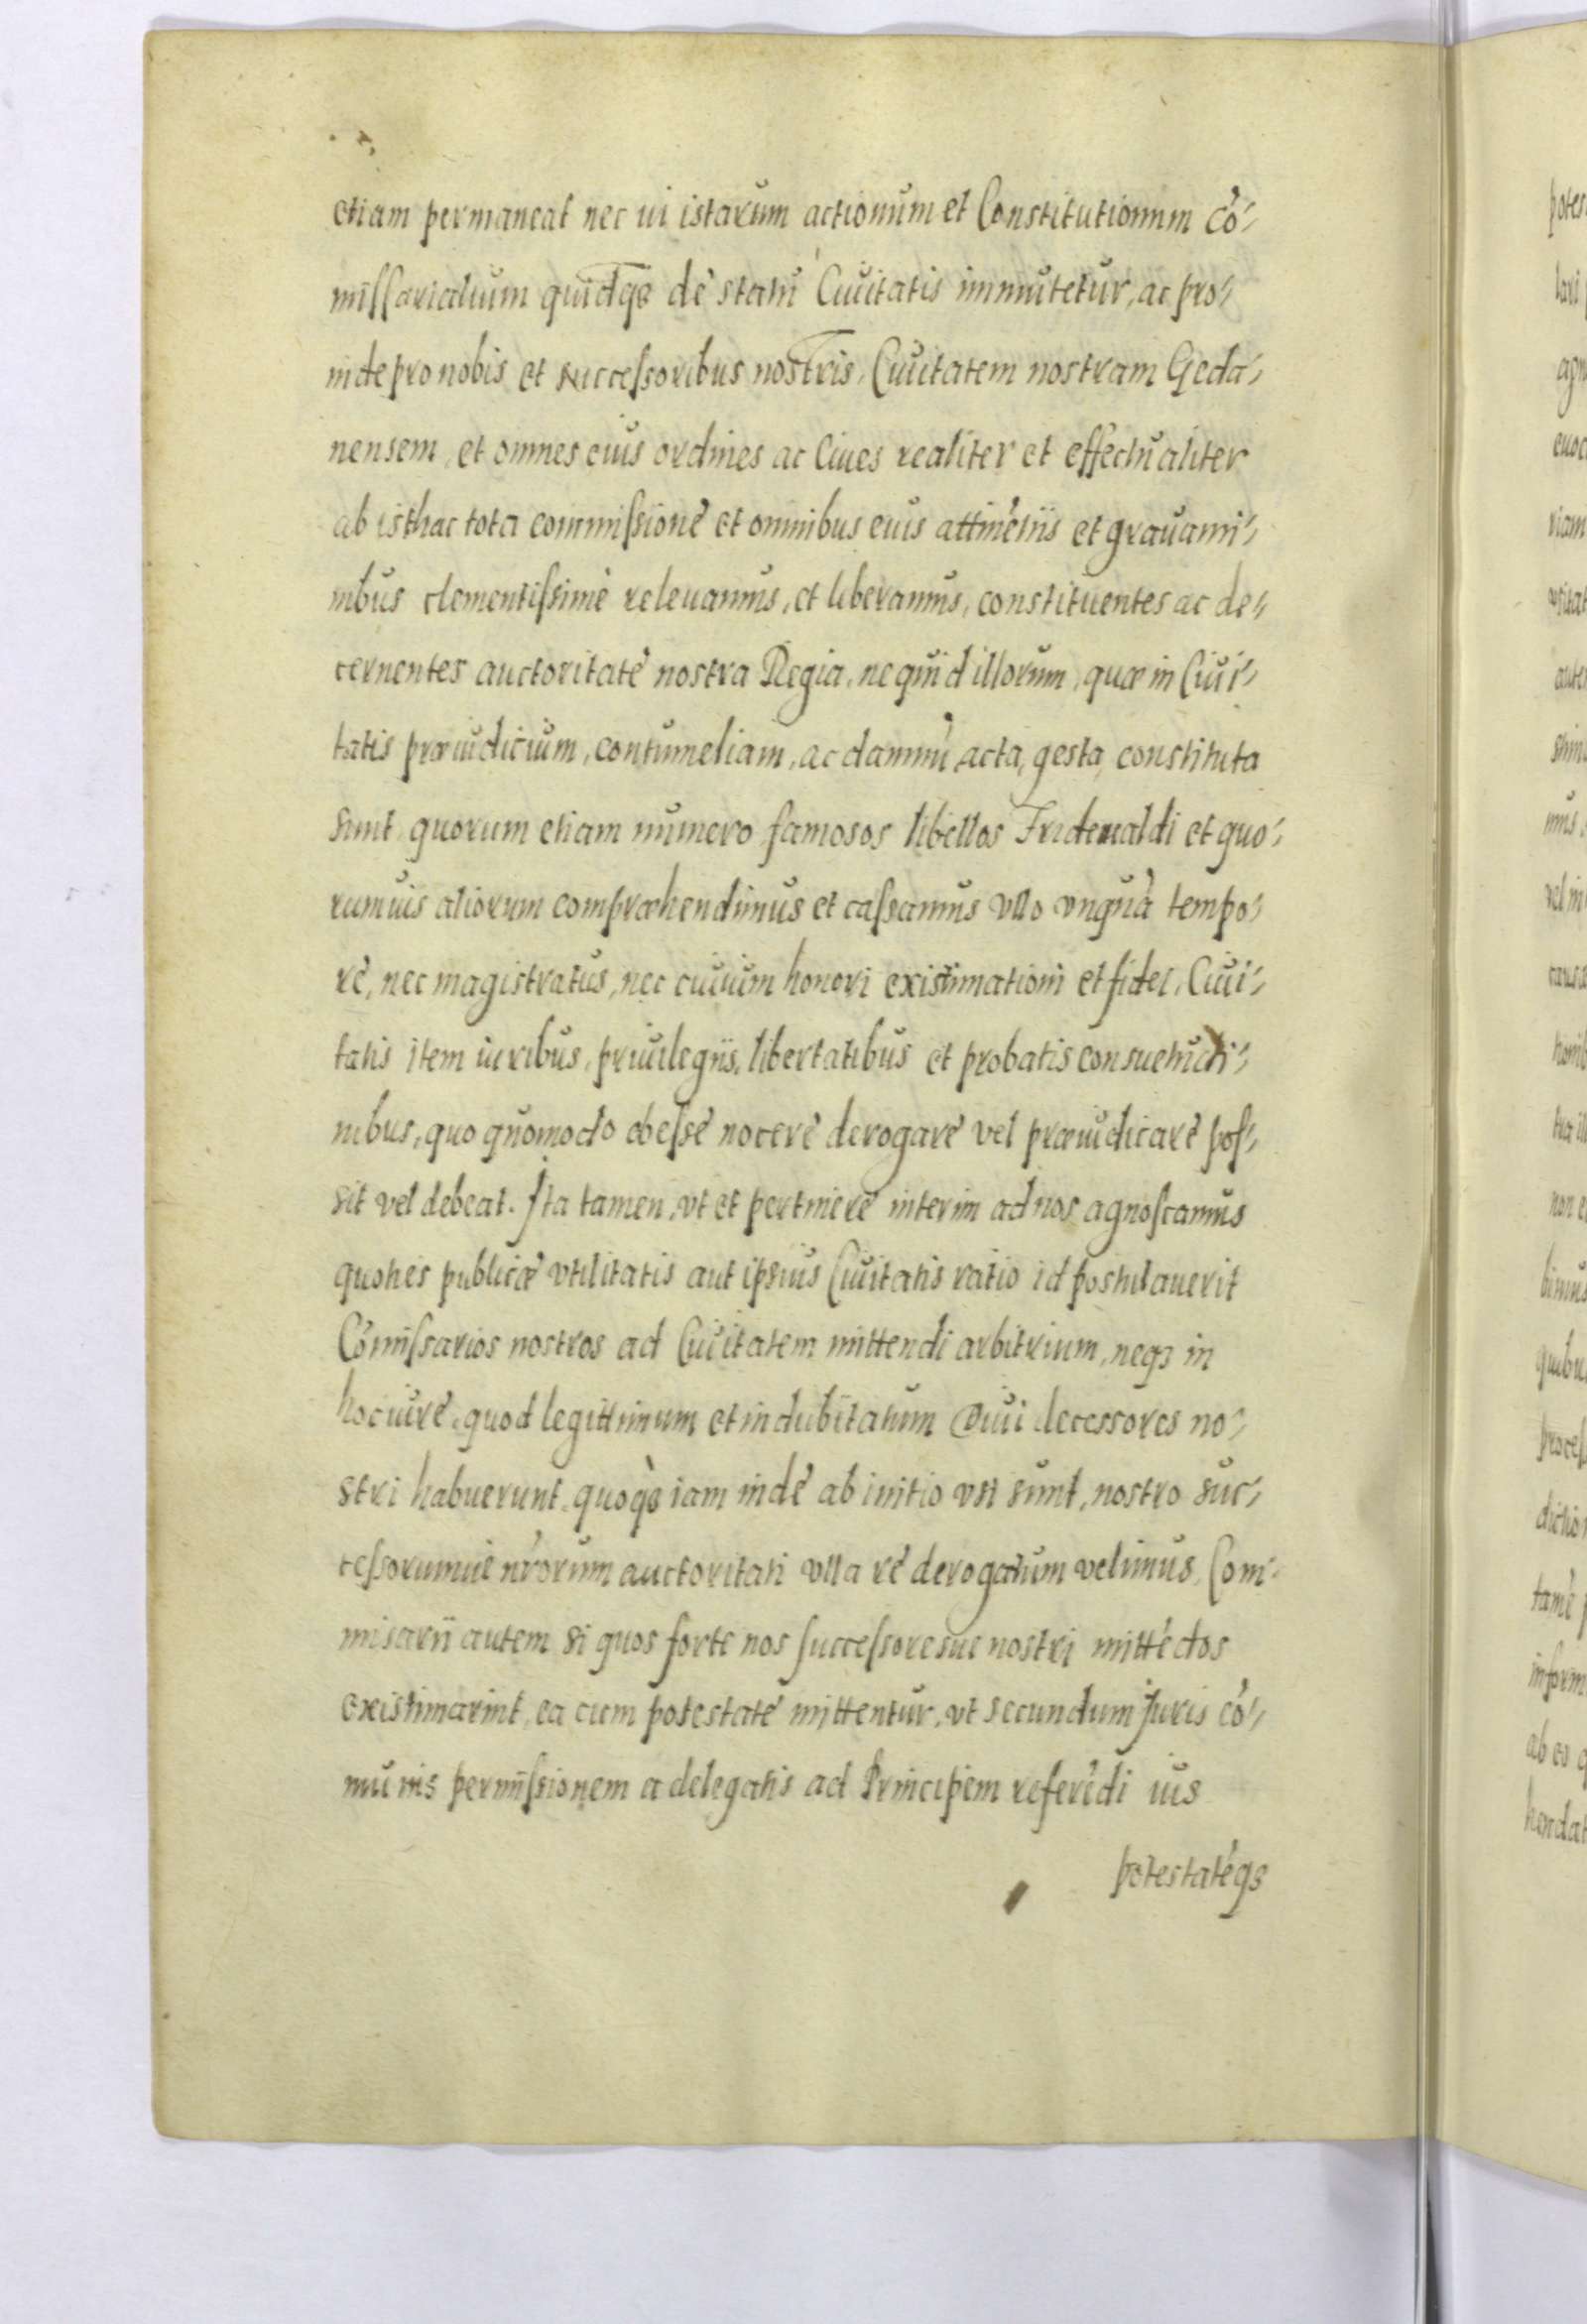 etiam permaneat nec ui istarum actionum et Constitutionum cō-
miſſarialium quidqȝ de statu Ciuitatis immutetur, ac pro-
inde pro nobis et succeſsoribus nostris, Ciuitatem nostram Geda-
nensem, et omnes eius ordines ac Ciues realiter et effectualiter
ab isthac tota commiſsione et omnibus euis attinētiis et grauami-
nibus clementiſsimè releuamus, et liberamus, constituentes ac de-
cernentes auctoritate nostra Regia, ne quid illorum, quæ in Ciui-
tatis præiudicium, contumeliam, ac damnū acta, gesta, constituta
sunt quorum etiam numero famosos libellos Fridewaldi et quo-
rumuis aliorum compræhendimus et caſsamus vllo vnquā tempo-
re, nec magistratus, nec ciuium honori existimationi et fidei, Ciui-
tatis item iuribus, priuilegiis, libertatibus et probatis consuetudi-
nibus, quo quomodo obeſse nocere derogare vel præiudicare poſ-
sit vel debeat. Ita tamen, vt et pertinere interim ad nos agnoſcamus
quoties publicæ vtilitatis aut ipsius Ciuitatis ratio id postulauerit
Cōmiſsarios nostros ad Ciuitatem mittendi arbitrium, neqȝ in
hoc iure, quod legittimum et indubitatum Diui decessores no-
stri habuerunt, quoqȝ iam inde ab initio vsi sunt, nostro suc-
ceſsorumue nr̄orum auctoritati vlla re derogatum velimus, Com-
misarii autem si quos forte nos ſucceſsoresue nostri mittēdos
existimarint, ea cum potestate mittentur, vt secundum Juris cō-
munis permiſsionem a delegatis ad Principem referēdi ius
potestatēqȝ